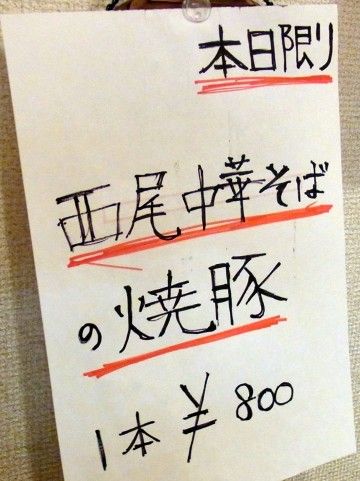 本日限り
西尾中華そば
の焼豚
1本¥800